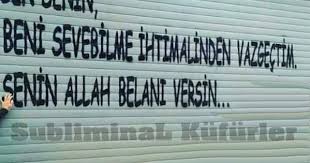 BEN SENİN,
BENİ SEVEBİLME İHTİMALİNDEN VAZGEÇTİM.
SENİN ALLAH BELANI VERSİN...
Subliminal Küfürler